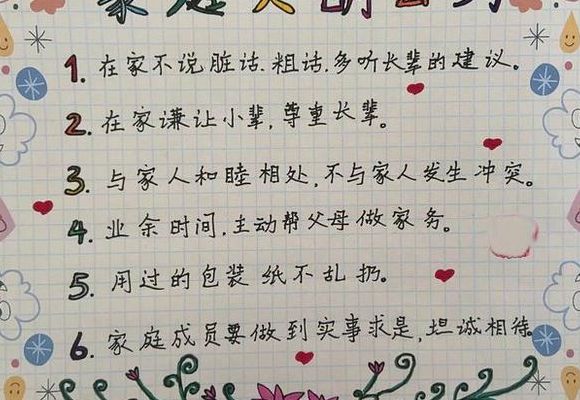 家庭文明公约
1. 在家不说脏话.粗话.多听长辈的建议。
2. 在家谦让小辈,尊重长辈。
3. 与家人和睦相处,不与家人发生冲突。
4. 业余时间,主动帮父母做家务。
5. 用过的包装纸不乱扔。
6. 家庭成员要做到实事求是,坦诚相待。